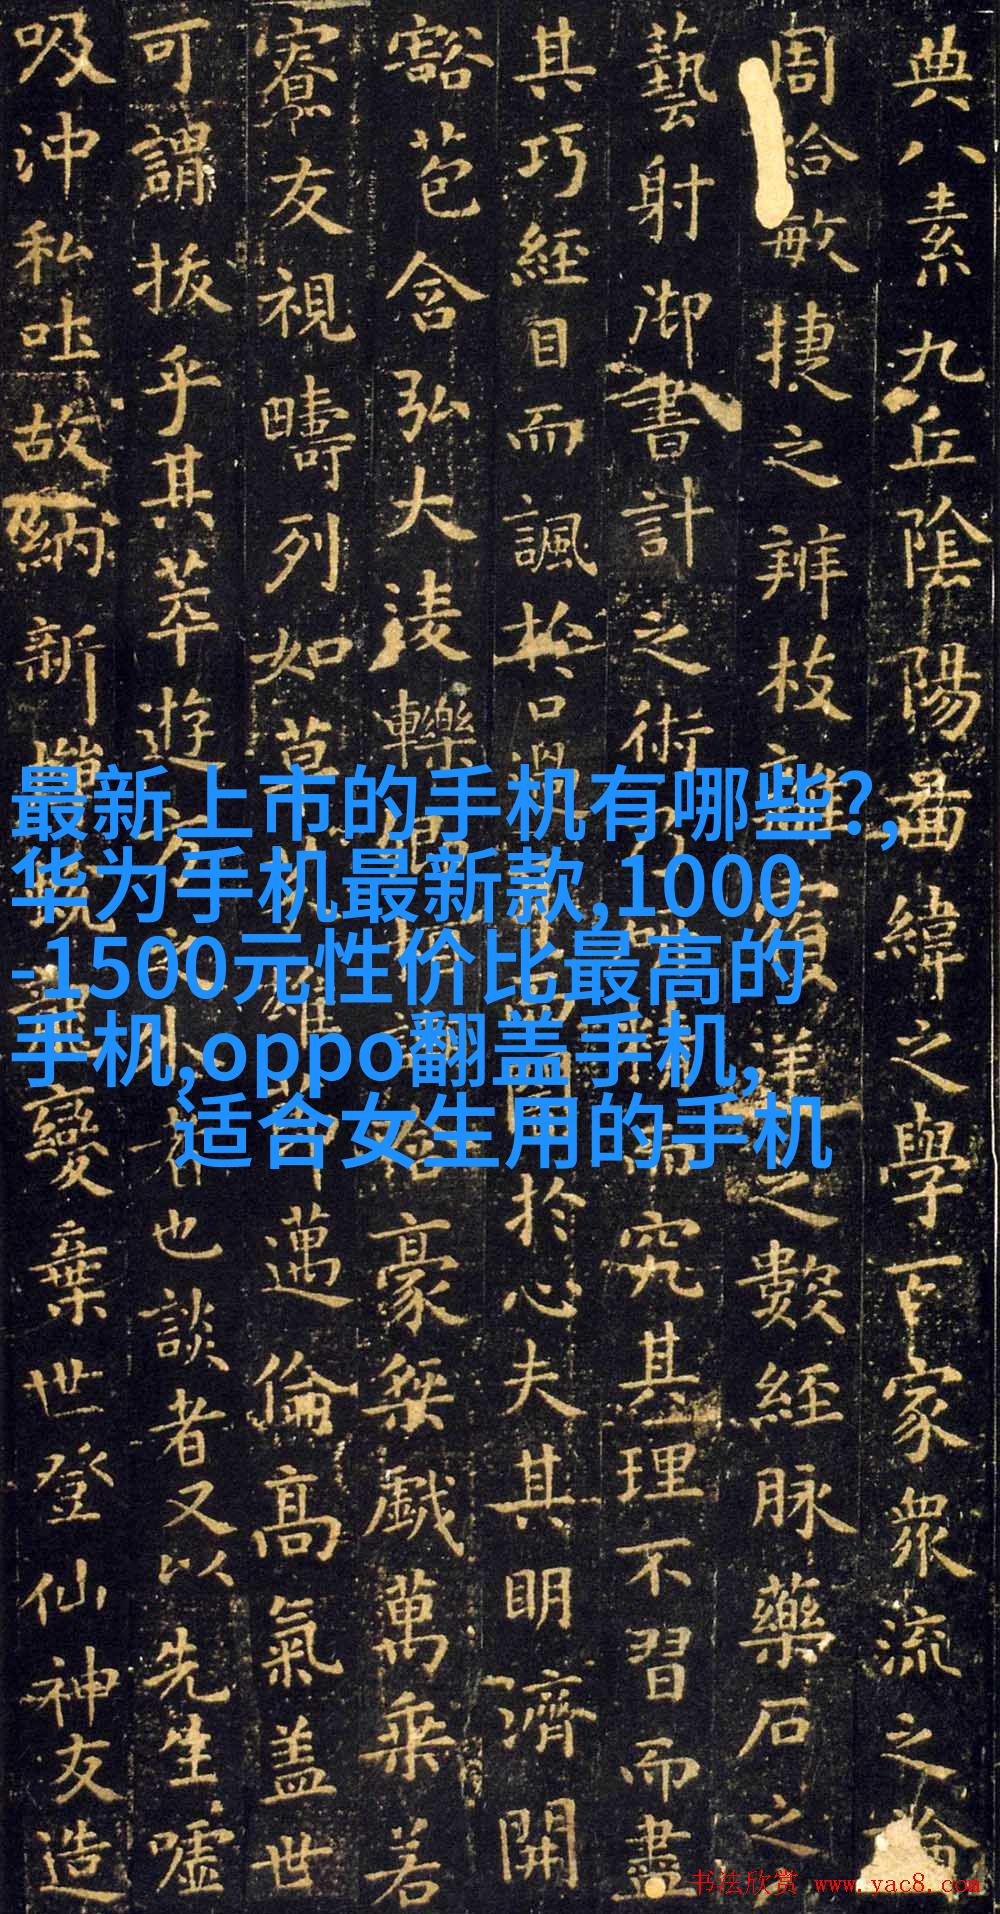 典八素九丘陰陽啚緯之學百家衆流之論
周給敏捷之辨枝之數經脉藥石之
藝射御書計之術究其理不習而盡
其巧經目而諷於口於心夫其明濟開
豁苞含弘大淩轢豪桀戱萬乘若
寮友視疇列如草邁倫高氣盖世
可謂拔乎其萃遊者也談者又以先生噓
吸沖私吐故納新變棄世登仙神友造
最新上市的手机有哪些?,
华为手机最新款,1000
-1500元性价比最高的
手机,oppo翻盖手机,
适合女生用的手机
书法欣赏 www.yac8.com